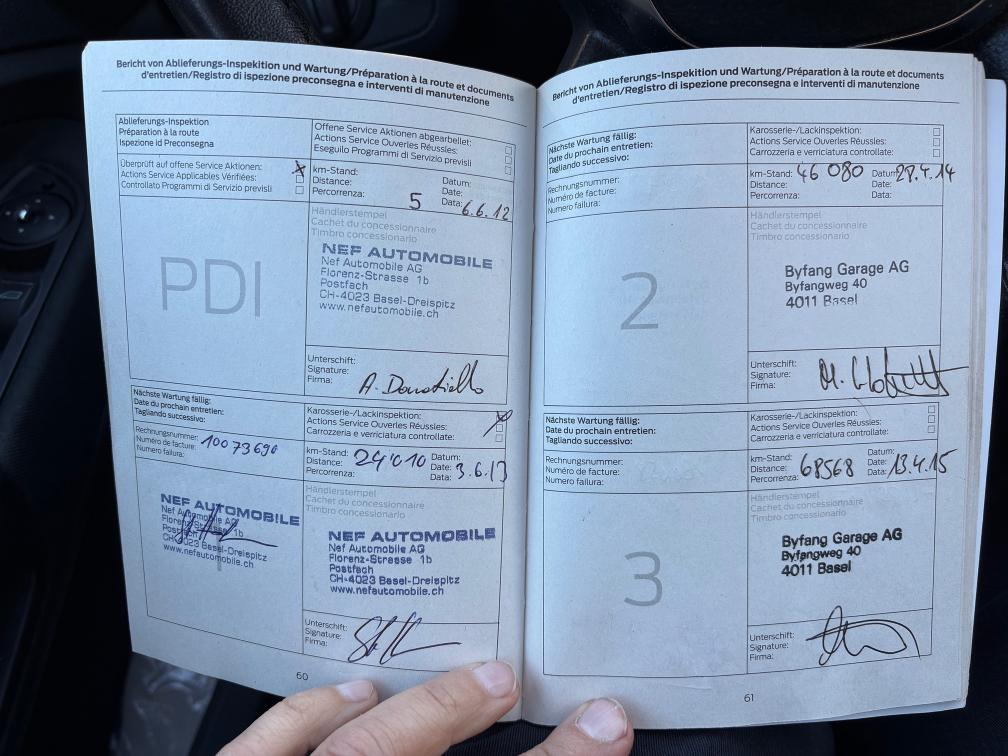 Bericht von Ablieferungs-Inspektion und Wartung/Préparation à la route et documents
d'entretien/Registro di ispezione preconsegna e interventi di manutenzione
Ablieferungs-Inspektion
Préparation à la route
Ispezione id Preconsegna
Offene Service Aktionen abgearbeitet:
Actions Service Ouverles Réussies:
Eseguilo Programmi di Servizio previsli
Überprüft auf offene Service Aktionen:
Actions Service Applicables Vérifiées:
Controllato Programmi di Servizio previsli
km-Stand:
Distance:
Percorrenza:
5
Datum:
Date:
Data:
6.6.12
PDI
Händlerstempel
Cachet du concessionnaire
Timbro concessionario
NEF AUTOMOBILE
Nef Automobile AG
Florenz-Strasse 1b
Postfach
CH-4023 Basel-Dreispitz
www.nefautomobile.ch
Unterschift:
Signature:
Firma:
A. Donatiello
Nächste Wartung fällig:
Date du prochain entretien:
Tagliando successivo:
Karosserie-/Lackinspektion:
Actions Service Ouverles Réussies:
Carrozzeria e verriciatura controllate:
Rechnungsnummer:
Numéro de facture:
Numero failura:
10073690
km-Stand:
Distance:
Percorrenza:
24'010
Datum:
Date:
Data:
3.6.13
1
NEF AUTOMOBILE
Nef Automobile AG
Florenz-Strasse 1b
Postfach
CH-4023 Basel-Dreispitz
www.nefautomobile.ch
Händlerstempel
Cachet du concessionnaire
Timbro concessionario
NEF AUTOMOBILE
Nef Automobile AG
Florenz-Strasse 1b
Postfach
CH-4023 Basel-Dreispitz
www.nefautomobile.ch
Unterschift:
Signature:
Firma:
60
Bericht von Ablieferungs-Inspekition und Wartung/Préparation à la route et documents
d'entretien/Registro di ispezione preconsegna e interventi di manutenzione
Nächste Wartung fällig:
Date du prochain entretien:
Tagliando successivo:
Karosserie-/Lackinspektion:
Actions Service Ouverles Réussies:
Carrozzeria e verriciatura controllate:
Rechnungsnummer:
Numéro de facture:
Numero failura:
km-Stand:
Distance:
Percorrenza:
46 080
Datum:
Date:
Data:
29.4.14
2
Händlerstempel
Cachet du concessionnaire
Timbro concessionario
Byfang Garage AG
Byfangweg 40
4011 Basel
Unterschift:
Signature:
Firma:
Nächste Wartung fällig:
Date du prochain entretien:
Tagliando successivo:
Karosserie-/Lackinspektion:
Actions Service Ouverles Réussies:
Carrozzeria e verriciatura controllate:
Rechnungsnummer:
Numéro de facture:
Numero failura:
km-Stand:
Distance:
Percorrenza:
68568
Datum:
Date:
Data:
13.4.15
3
Händlerstempel
Cachet du concessionnaire
Timbro concessionario
Byfang Garage AG
Byfangweg 40
4011 Basel
Unterschift:
Signature:
Firma:
61